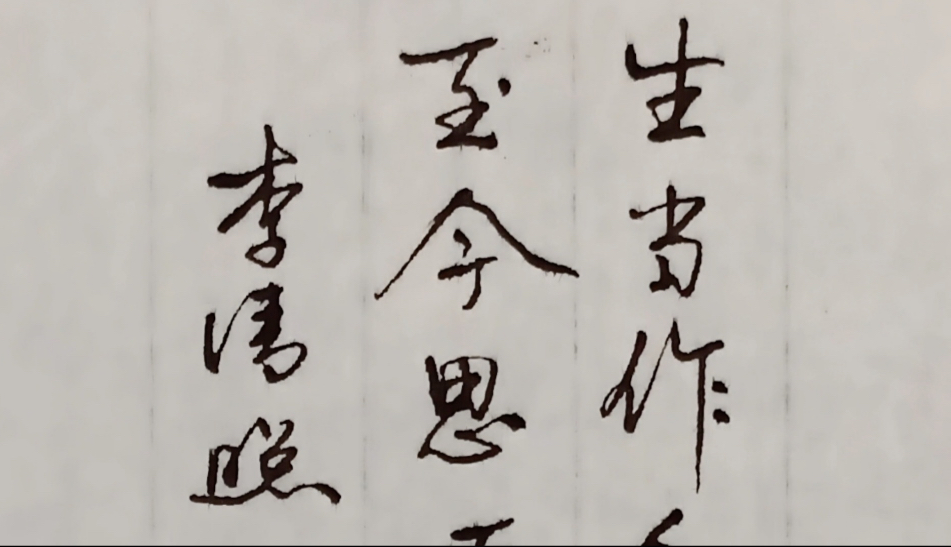 生当作
至今思
李清照